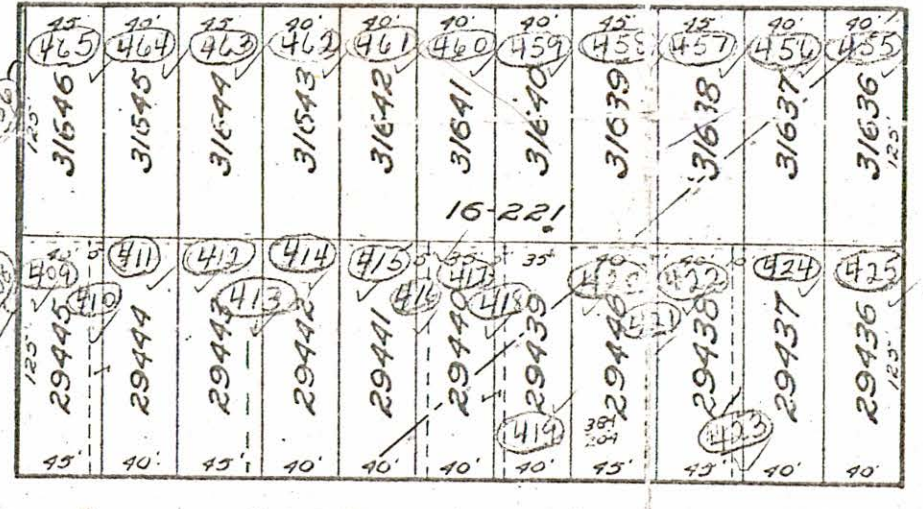 45' 40' 45' 40' 40' 40' 40' 45' 45' 40' 40'
465 464 463 462 461 460 459 458 457 456 455
31646 31645 31644 31643 31642 31641 31640 31639 31638 31637 31636
125' 125'
16-221
40 5' 5 35 5 35± 40
409 411 412 414 415 417 420 422 424 425
410 413 416 418 421
29445 29444 29443 29442 29441 29440 29439 29446 29438 29437 29436
125' 125'
419 423
45' 40' 45' 40' 40' 40' 40' 45' 45' 40' 40'